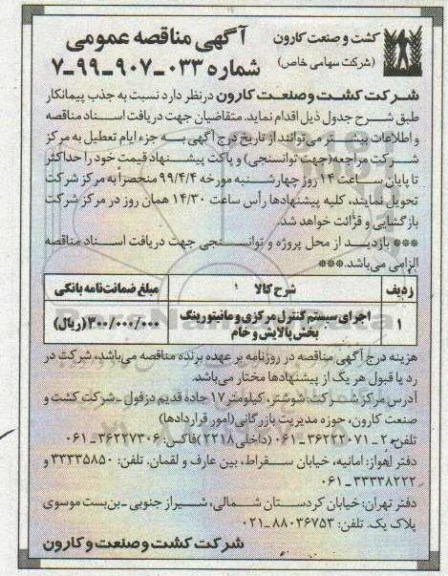 کشت و صنعت کارون
(شرکت سهامی خاص)
آگهی مناقصه عمومی
شماره ۰۳۳-۹۰۷-۹۹-۷
شرکت کشت وصنعت کارون درنظر دارد نسبت به جذب پیمانکار
طبق شرح جدول ذیل اقدام نماید. متقاضیان جهت دریافت اسناد مناقصه
و اطلاعات می توانند از تاریخ درج آگهی به جزء ایام تعطیل به مرکز
شرکت مراجعه(جهت توانسنجی) و پاکت پیشنهاد قیمت خود را حداکثر
تا پایان ساعت ۱۴ روز چهارشنبه مورخه ۹۹/۴/۴ منحصراً به مرکز شرکت
تحویل نمایند، کلیه پیشنهادها رأس ساعت ۱۴/۳۰ همان روز در مرکز شرکت
بازگشایی و قرائت خواهد شد.
*** بازدید از محل پروژه و توانسنجی جهت دریافت اسناد مناقصه
الزامی می‌باشد.***
ردیف شرح کالا مبلغ ضمانت نامه بانکی
۱ اجرای سیستم کنترل مرکزی و مانیتورینگ بخش پالایش و خام ۳۰۰/۰۰۰/۰۰۰(ریال)
ParsNamadData
هزینه درج آگهی مناقصه در روزنامه بر عهده برنده مناقصه می‌باشد، شرکت در
رد یا قبول هر یک از پیشنهادها مختار می‌باشد.
آدرس مرکز شرکت: شوشتر، کیلومتر ۱۷ جاده قدیم دزفول - شرکت کشت و
صنعت کارون، حوزه مدیریت بازرگانی(امور قراردادها)
تلفن: ۲ - ۳۶۲۲۲۰۷۱-۰۶۱ (داخلی۲۲۱۸) فاکس: ۳۶۲۲۷۳۰۶-۰۶۱
دفتر اهواز: امانیه، خیابان سقراط، بین عارف و لقمان، تلفن: ۳۳۳۳۵۸۵۰ و
۳۳۳۳۸۲۲۲-۰۶۱
دفتر تهران: خیابان کردستان شمالی، شیراز جنوبی - بن‌بست موسوی
پلاک یک. تلفن: ۸۸۰۳۶۷۵۳-۰۲۱
شرکت کشت وصنعت و کارون